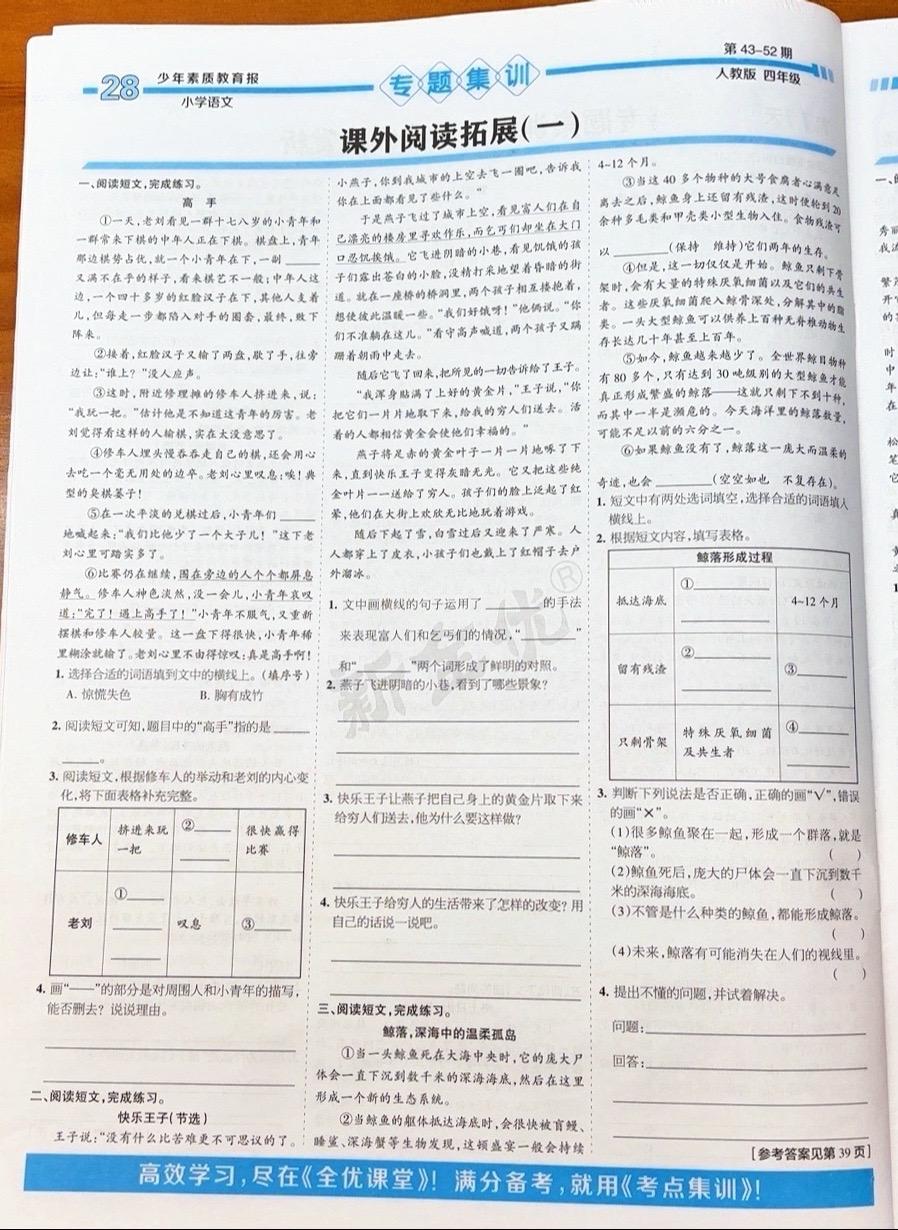 28
少年素质教育报
小学语文
专题集训
第 43-52 期
人教版 四年级
课外阅读拓展(一)
一、阅读短文,完成练习。
高 手
①一天,老刘看见一群十七八岁的小青年和
一群常来下棋的中年人正在下棋。棋盘上,青年
那边棋势占优,就一个小青年在下,一副______
又满不在乎的样子,看来棋艺不一般;中年人这
边,一个四十多岁的红脸汉子在下,其他人支着
儿,但每走一步都陷入对手的圈套,最终,败下
阵来。
②接着,红脸汉子又输了两盘,歇了手,往旁
边让:“谁上?”没人应声。
③这时,附近修理摊的修车人挤进来,说:
“我玩一把。”估计他是不知道这青年的厉害。老
刘觉得看这样的人输棋,实在太没意思了。
④修车人埋头慢吞吞走自己的棋,还会用心
去吃一个毫无用处的边卒。老刘心里叹息:唉!典
型的臭棋篓子!
⑤在一次平淡的兑棋过后,小青年们______
地喊起来:“我们比他少了一个大子儿!”这下老
刘心里可踏实多了。
⑥比赛仍在继续,围在旁边的人个个都屏息
静气。修车人神色淡然,没一会儿,小青年哀叹
道:“完了!遇上高手了!”小青年不服气,又重新
摆棋和修车人较量。这一盘下得很快,小青年稀
里糊涂就输了。老刘心里不由得惊叹:真是高手啊!
1. 选择合适的词语填到文中的横线上。(填序号)
A. 惊慌失色 B. 胸有成竹
2. 阅读短文可知,题目中的“高手”指的是______
______。
3. 阅读短文,根据修车人的举动和老刘的内心变
化,将下面表格补充完整。
修车人 挤进来玩一把 ②______ 很快赢得比赛
老刘 ①______ 叹息 ③______
4. 画“——”的部分是对周围人和小青年的描写,
能否删去?说说理由。
二、阅读短文,完成练习。
快乐王子(节选)
王子说:“没有什么比苦难更不可思议的了。
小燕子,你到我城市的上空去飞一圈吧,告诉我
你在上面都看见了些什么。”
于是燕子飞过了城市上空,看见富人们在自
己漂亮的楼房里寻欢作乐,而乞丐们却坐在大门
口忍饥挨饿。它飞进阴暗的小巷,看见饥饿的孩
子们露出苍白的小脸,没精打采地望着昏暗的街
道。就在一座桥的桥洞里,两个孩子相互搂抱着,
想使彼此温暖一些。“我们好饿呀!”他俩说。“你
们不准躺在这儿。”看守高声喊道,两个孩子又蹒
跚着朝雨中走去。
随后它飞了回来,把所见的一切告诉给了王子。
“我浑身贴满了上好的黄金片,”王子说,“你
把它们一片片地取下来,给我的穷人们送去。活
着的人都相信黄金会使他们幸福的。”
燕子将足赤的黄金叶子一片一片地啄了下
来,直到快乐王子变得灰暗无光。它又把这些纯
金叶片一一送给了穷人。孩子们的脸上泛起了红
晕,他们在大街上欢欣无比地玩着游戏。
随后下起了雪,白雪过后又迎来了严寒。人
人都穿上了皮衣,小孩子们也戴上了红帽子去户
外溜冰。
1. 文中画横线的句子运用了______的手法
来表现富人们和乞丐们的情况,“______”
和“______”两个词形成了鲜明的对照。
2. 燕子飞进阴暗的小巷,看到了哪些景象?
3. 快乐王子让燕子把自己身上的黄金片取下来
给穷人们送去,他为什么要这样做?
4. 快乐王子给穷人的生活带来了怎样的改变?用
自己的话说一说吧。
三、阅读短文,完成练习。
鲸落,深海中的温柔孤岛
①当一头鲸鱼死在大海中央时,它的庞大尸
体会一直下沉到数千米的深海海底,然后在这里
形成一个新的生态系统。
②当鲸鱼的躯体抵达海底时,会很快被盲鳗、
睡鲨、深海蟹等生物发现,这顿盛宴一般会持续
4~12 个月。
③当这 40 多个物种的大号食腐者心满意足
离去之后,鲸鱼身上还留有残渣,这时便轮到 20
余种多毛类和甲壳类小型生物入住。食物残渣可
以______(保持 维持)它们两年的生存。
④但是,这一切仅仅是开始。鲸鱼只剩下骨
架时,会有大量的特殊厌氧细菌以及它们的共生
者。这些厌氧细菌爬入鲸骨深处,分解其中的脂
类。一头大型鲸鱼可以供养上百种无脊椎动物生
存长达几十年甚至上百年。
⑤如今,鲸鱼越来越少了。全世界鲸目物种
有 80 多个,只有达到 30 吨级别的大型鲸鱼才能
真正形成繁盛的鲸落——这就只剩下不到十种,
而其中一半是濒危的。今天海洋里的鲸落数量,
可能不足以前的六分之一。
⑥如果鲸鱼没有了,鲸落这一庞大而温柔的
奇迹,也会______(空空如也 不复存在)。
1. 短文中有两处选词填空,选择合适的词语填入
横线上。
2. 根据短文内容,填写表格。
鲸落形成过程
抵达海底 ①______ 4~12 个月
留有残渣 ②______ ③______
只剩骨架 特殊厌氧细菌及共生者 ④______
3. 判断下列说法是否正确,正确的画“√”,错误
的画“×”。
(1)很多鲸鱼聚在一起,形成一个群落,就是
“鲸落”。 ( )
(2)鲸鱼死后,庞大的尸体会一直下沉到数千
米的深海海底。 ( )
(3)不管是什么种类的鲸鱼,都能形成鲸落。
( )
(4)未来,鲸落有可能消失在人们的视线里。
( )
4. 提出不懂的问题,并试着解决。
问题:______
回答:______
[参考答案见第 39 页]
高效学习,尽在《全优课堂》!满分备考,就用《考点集训》!